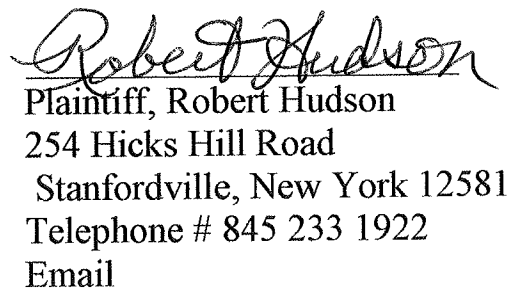 Robert Hudson
Plaintiff, Robert Hudson
254 Hicks Hill Road
Stanfordville, New York 12581
Telephone # 845 233 1922
Email